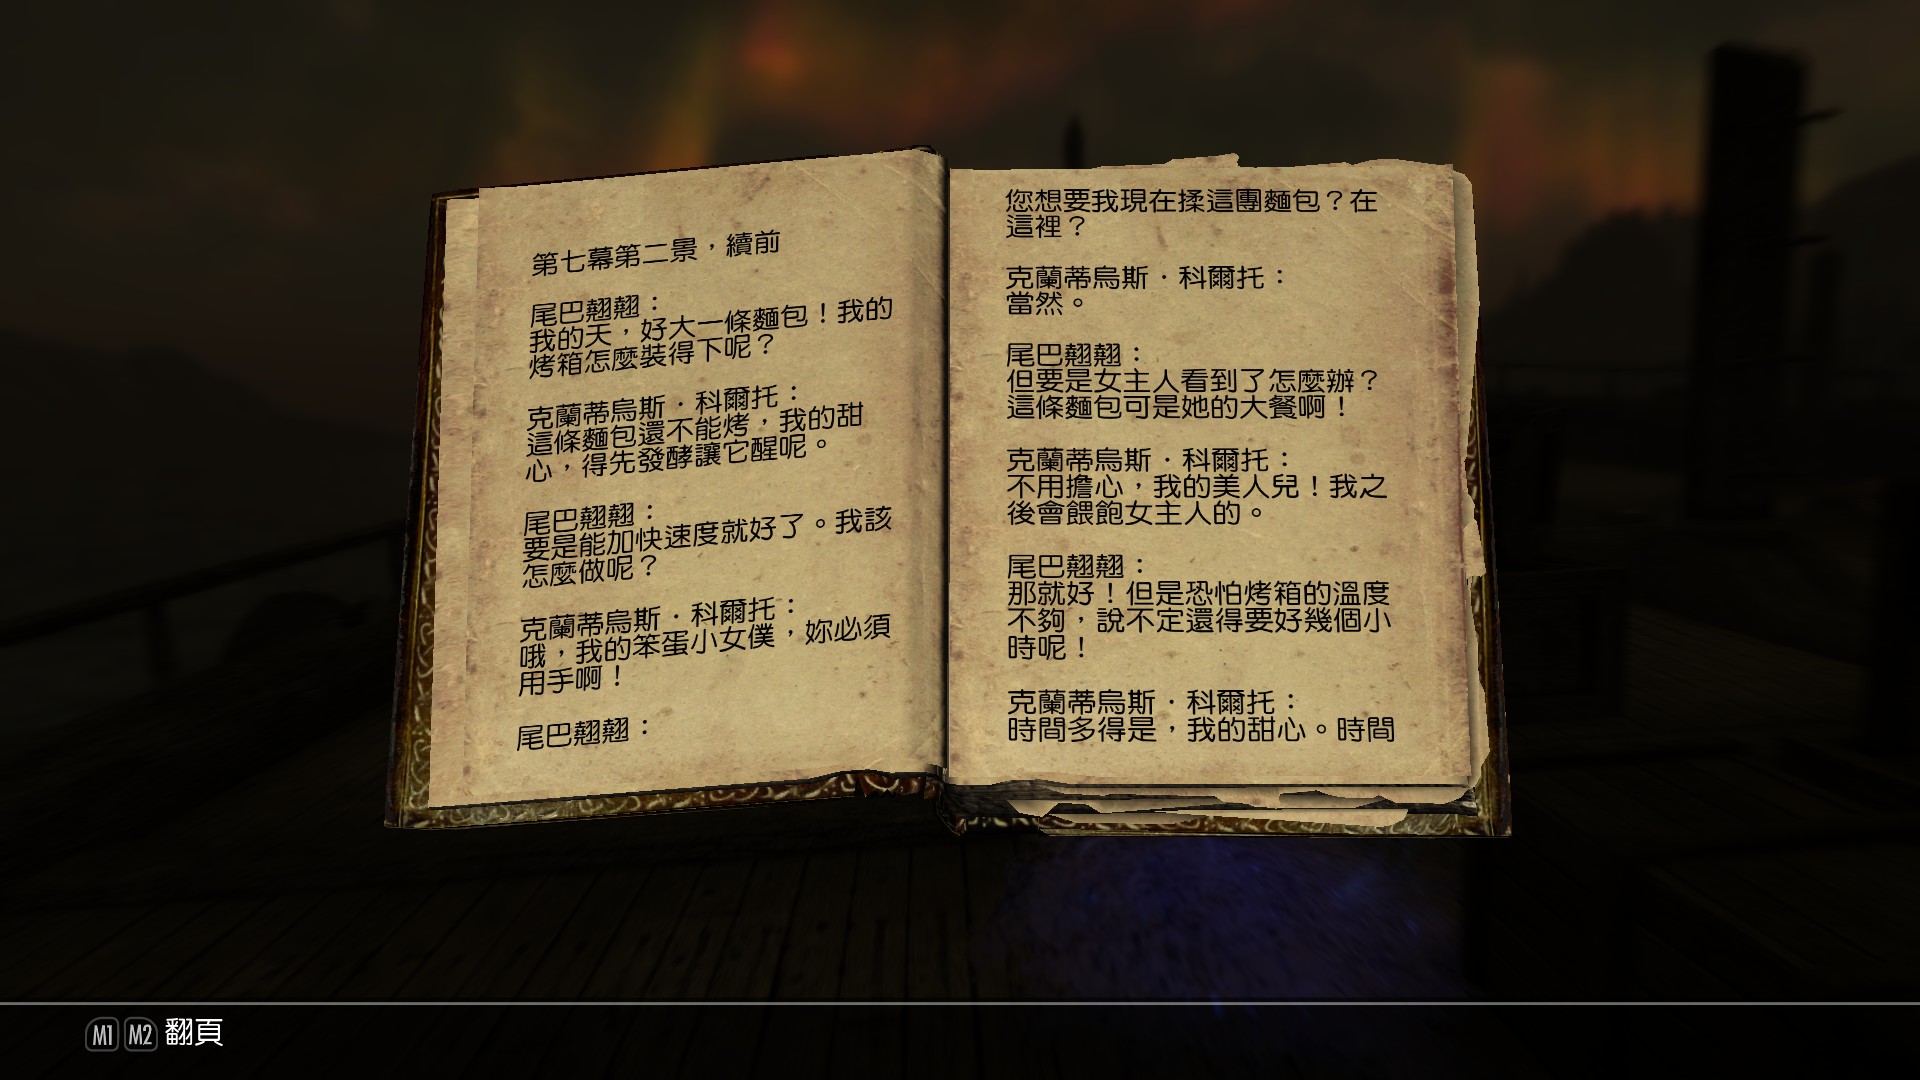 第七幕第二景，續前
尾巴翹翹：
我的天，好大一條麵包！我的
烤箱怎麼裝得下呢？
克蘭蒂烏斯．科爾托：
這條麵包還不能烤，我的甜
心，得先發酵讓它醒呢。
尾巴翹翹：
要是能加快速度就好了。我該
怎麼做呢？
克蘭蒂烏斯．科爾托：
哦，我的笨蛋小女僕，妳必須
用手啊！
尾巴翹翹：
您想要我現在揉這團麵包？在
這裡？
克蘭蒂烏斯．科爾托：
當然。
尾巴翹翹：
但要是女主人看到了怎麼辦？
這條麵包可是她的大餐啊！
克蘭蒂烏斯．科爾托：
不用擔心，我的美人兒！我之
後會餵飽女主人的。
尾巴翹翹：
那就好！但是恐怕烤箱的溫度
不夠，說不定還得要好幾個小
時呢！
克蘭蒂烏斯．科爾托：
時間多得是，我的甜心。時間
M1 M2 翻頁